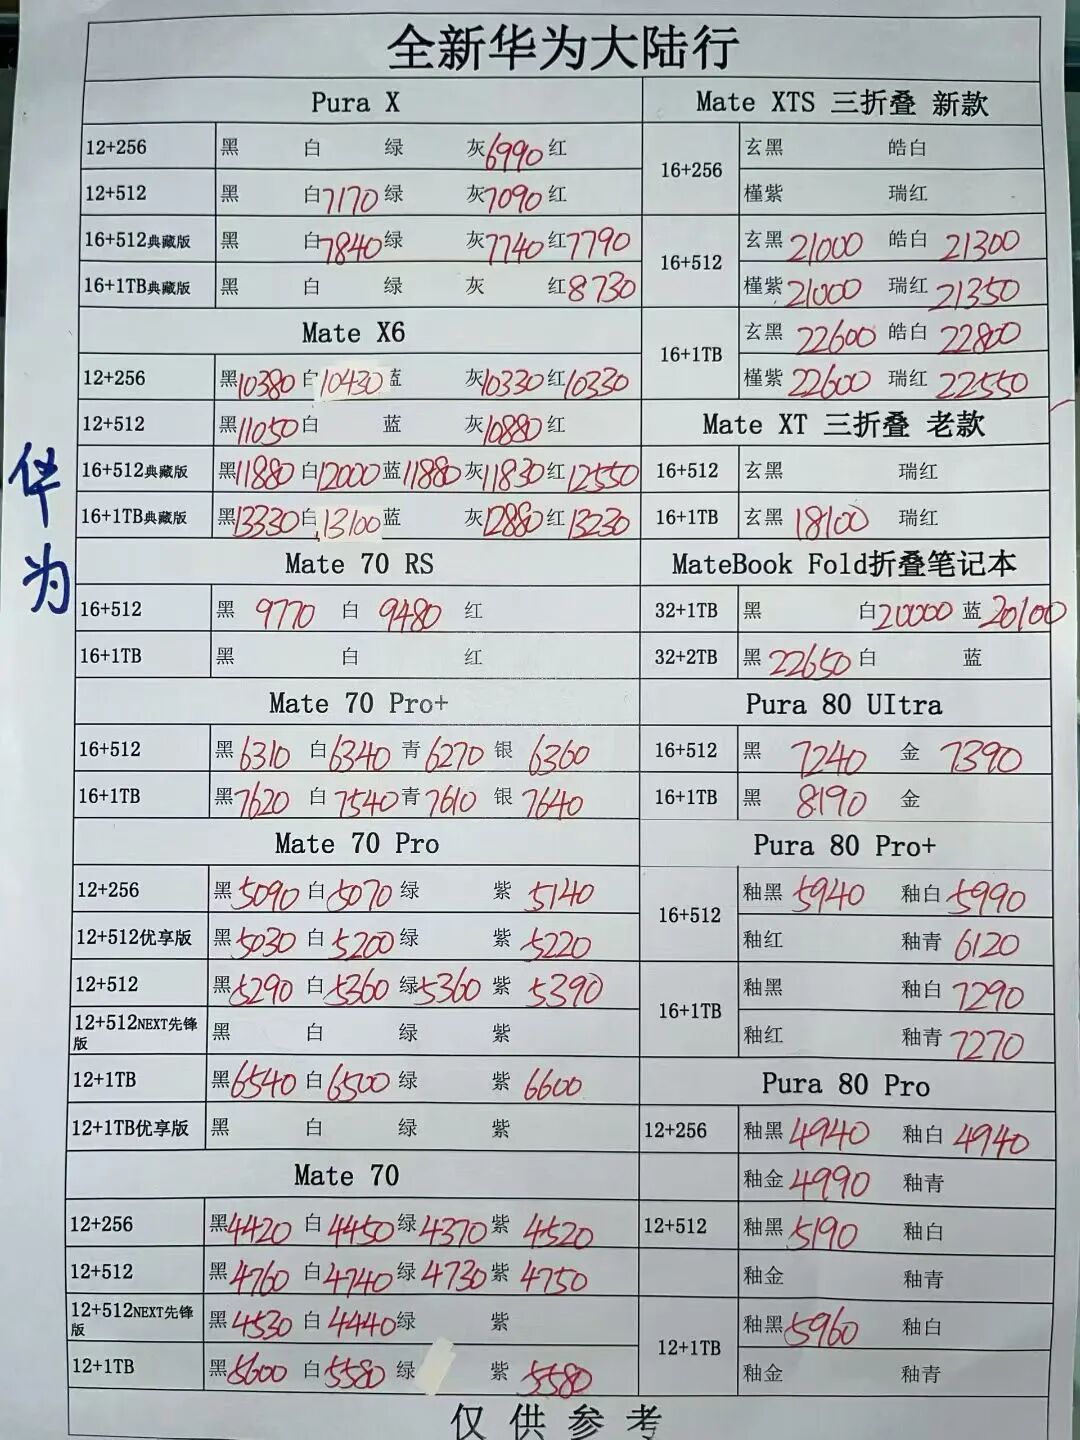 全新华为大陆行
Pura X
12+256 黑 白 绿 灰6990 红
12+512 黑 白7170 绿 灰7090 红
16+512典藏版 黑 白7840 绿 灰7740 红7790
16+1TB典藏版 黑 白 绿 灰 红8730
Mate X6
12+256 黑10380 白10430 蓝 灰10330 红10330
12+512 黑11050 白 蓝 灰10880 红
16+512典藏版 黑11880 白12000 蓝11880 灰11830 红12550
16+1TB典藏版 黑13330 白13100 蓝 灰12880 红13230
Mate 70 RS
16+512 黑 9770 白 9480 红
16+1TB 黑 白 红
Mate 70 Pro+
16+512 黑6310 白6340 青6270 银 6360
16+1TB 黑7620 白 7540 青7610 银 7640
Mate 70 Pro
12+256 黑5090 白5070 绿 紫 5140
12+512优享版 黑5030 白5200 绿 紫5220
12+512 黑5290 白5360 绿5360 紫 5390
12+512NEXT先锋版 黑 白 绿 紫
12+1TB 黑6540 白6500 绿 紫 6600
12+1TB优享版 黑 白 绿 紫
Mate 70
12+256 黑4420 白4450 绿4370 紫 4520
12+512 黑4760 白4740 绿4730 紫4750
12+512NEXT先锋版 黑4530 白4440 绿 紫
12+1TB 黑5600 白5580 绿 紫 5580
Mate XTS 三折叠 新款
16+256 玄黑 皓白
槿紫 瑞红
16+512 玄黑21000 皓白 21300
槿紫21000 瑞红21350
16+1TB 玄黑 22600 皓白 22800
槿紫22600 瑞红 22550
Mate XT 三折叠 老款
16+512 玄黑 瑞红
16+1TB 玄黑 18100 瑞红
MateBook Fold折叠笔记本
32+1TB 黑 白20000 蓝20100
32+2TB 黑22650 白 蓝
Pura 80 UItra
16+512 黑 7240 金 7390
16+1TB 黑 8190 金
Pura 80 Pro+
16+512 釉黑5940 釉白5990
釉红 釉青 6120
16+1TB 釉黑 釉白7290
釉红 釉青7270
Pura 80 Pro
12+256 釉黑4940 釉白4940
釉金4990 釉青
12+512 釉黑5190 釉白
釉金 釉青
12+1TB 釉黑5960 釉白
釉金 釉青
仅供参考
华为